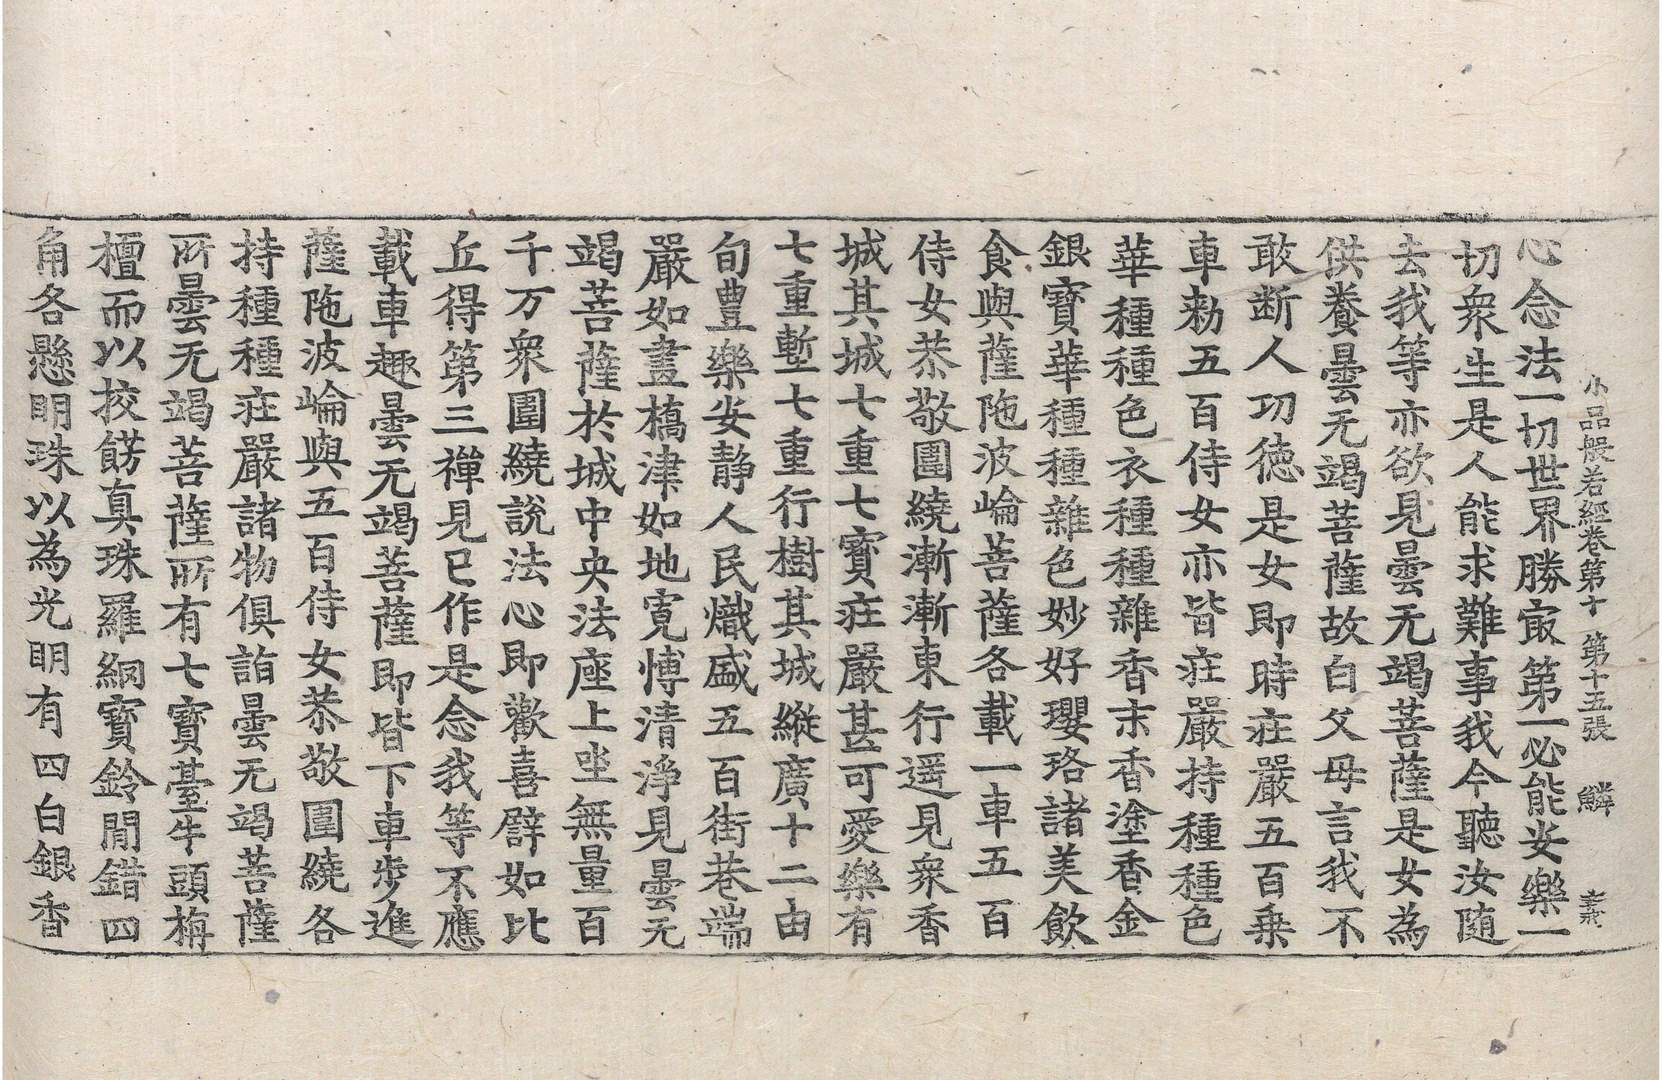 小品般若經卷第十 第十五張 鱗
心念法一切世界勝㝡第一必能安樂一
切衆生是人能求難事我今聽汝随
去我等亦欲見曇无竭菩薩是女為
供養曇无竭菩薩故白父母言我不
敢断人功徳是女即時莊嚴五百乗
車勑五百侍女亦皆莊嚴持種種色
華種種色衣種種雜香末香塗香金
銀寶華種種雜色妙好瓔珞諸美飲
食與薩陁波崘菩薩各載一車五百
侍女恭敬圍繞漸漸東行遥見衆香
城其城七重七寶莊嚴甚可愛樂有
七重塹七重行樹其城縱廣十二由
旬豊樂安静人民熾盛五百街巷端
嚴如畫橋津如地寛愽清淨見曇无
竭菩薩於城中央法座上坐無量百
千万衆圍繞說法心即歡喜譬如比
丘得第三禪見已作是念我等不應
載車趣曇无竭菩薩即皆下車步進
薩陁波崘與五百侍女恭敬圍繞各
持種種莊嚴諸物俱詣曇无竭菩薩
所曇无竭菩薩所有七寶臺牛頭栴
檀而以挍餝真珠羅網寶鈴閒錯四
角各懸明珠以為光明有四白銀香